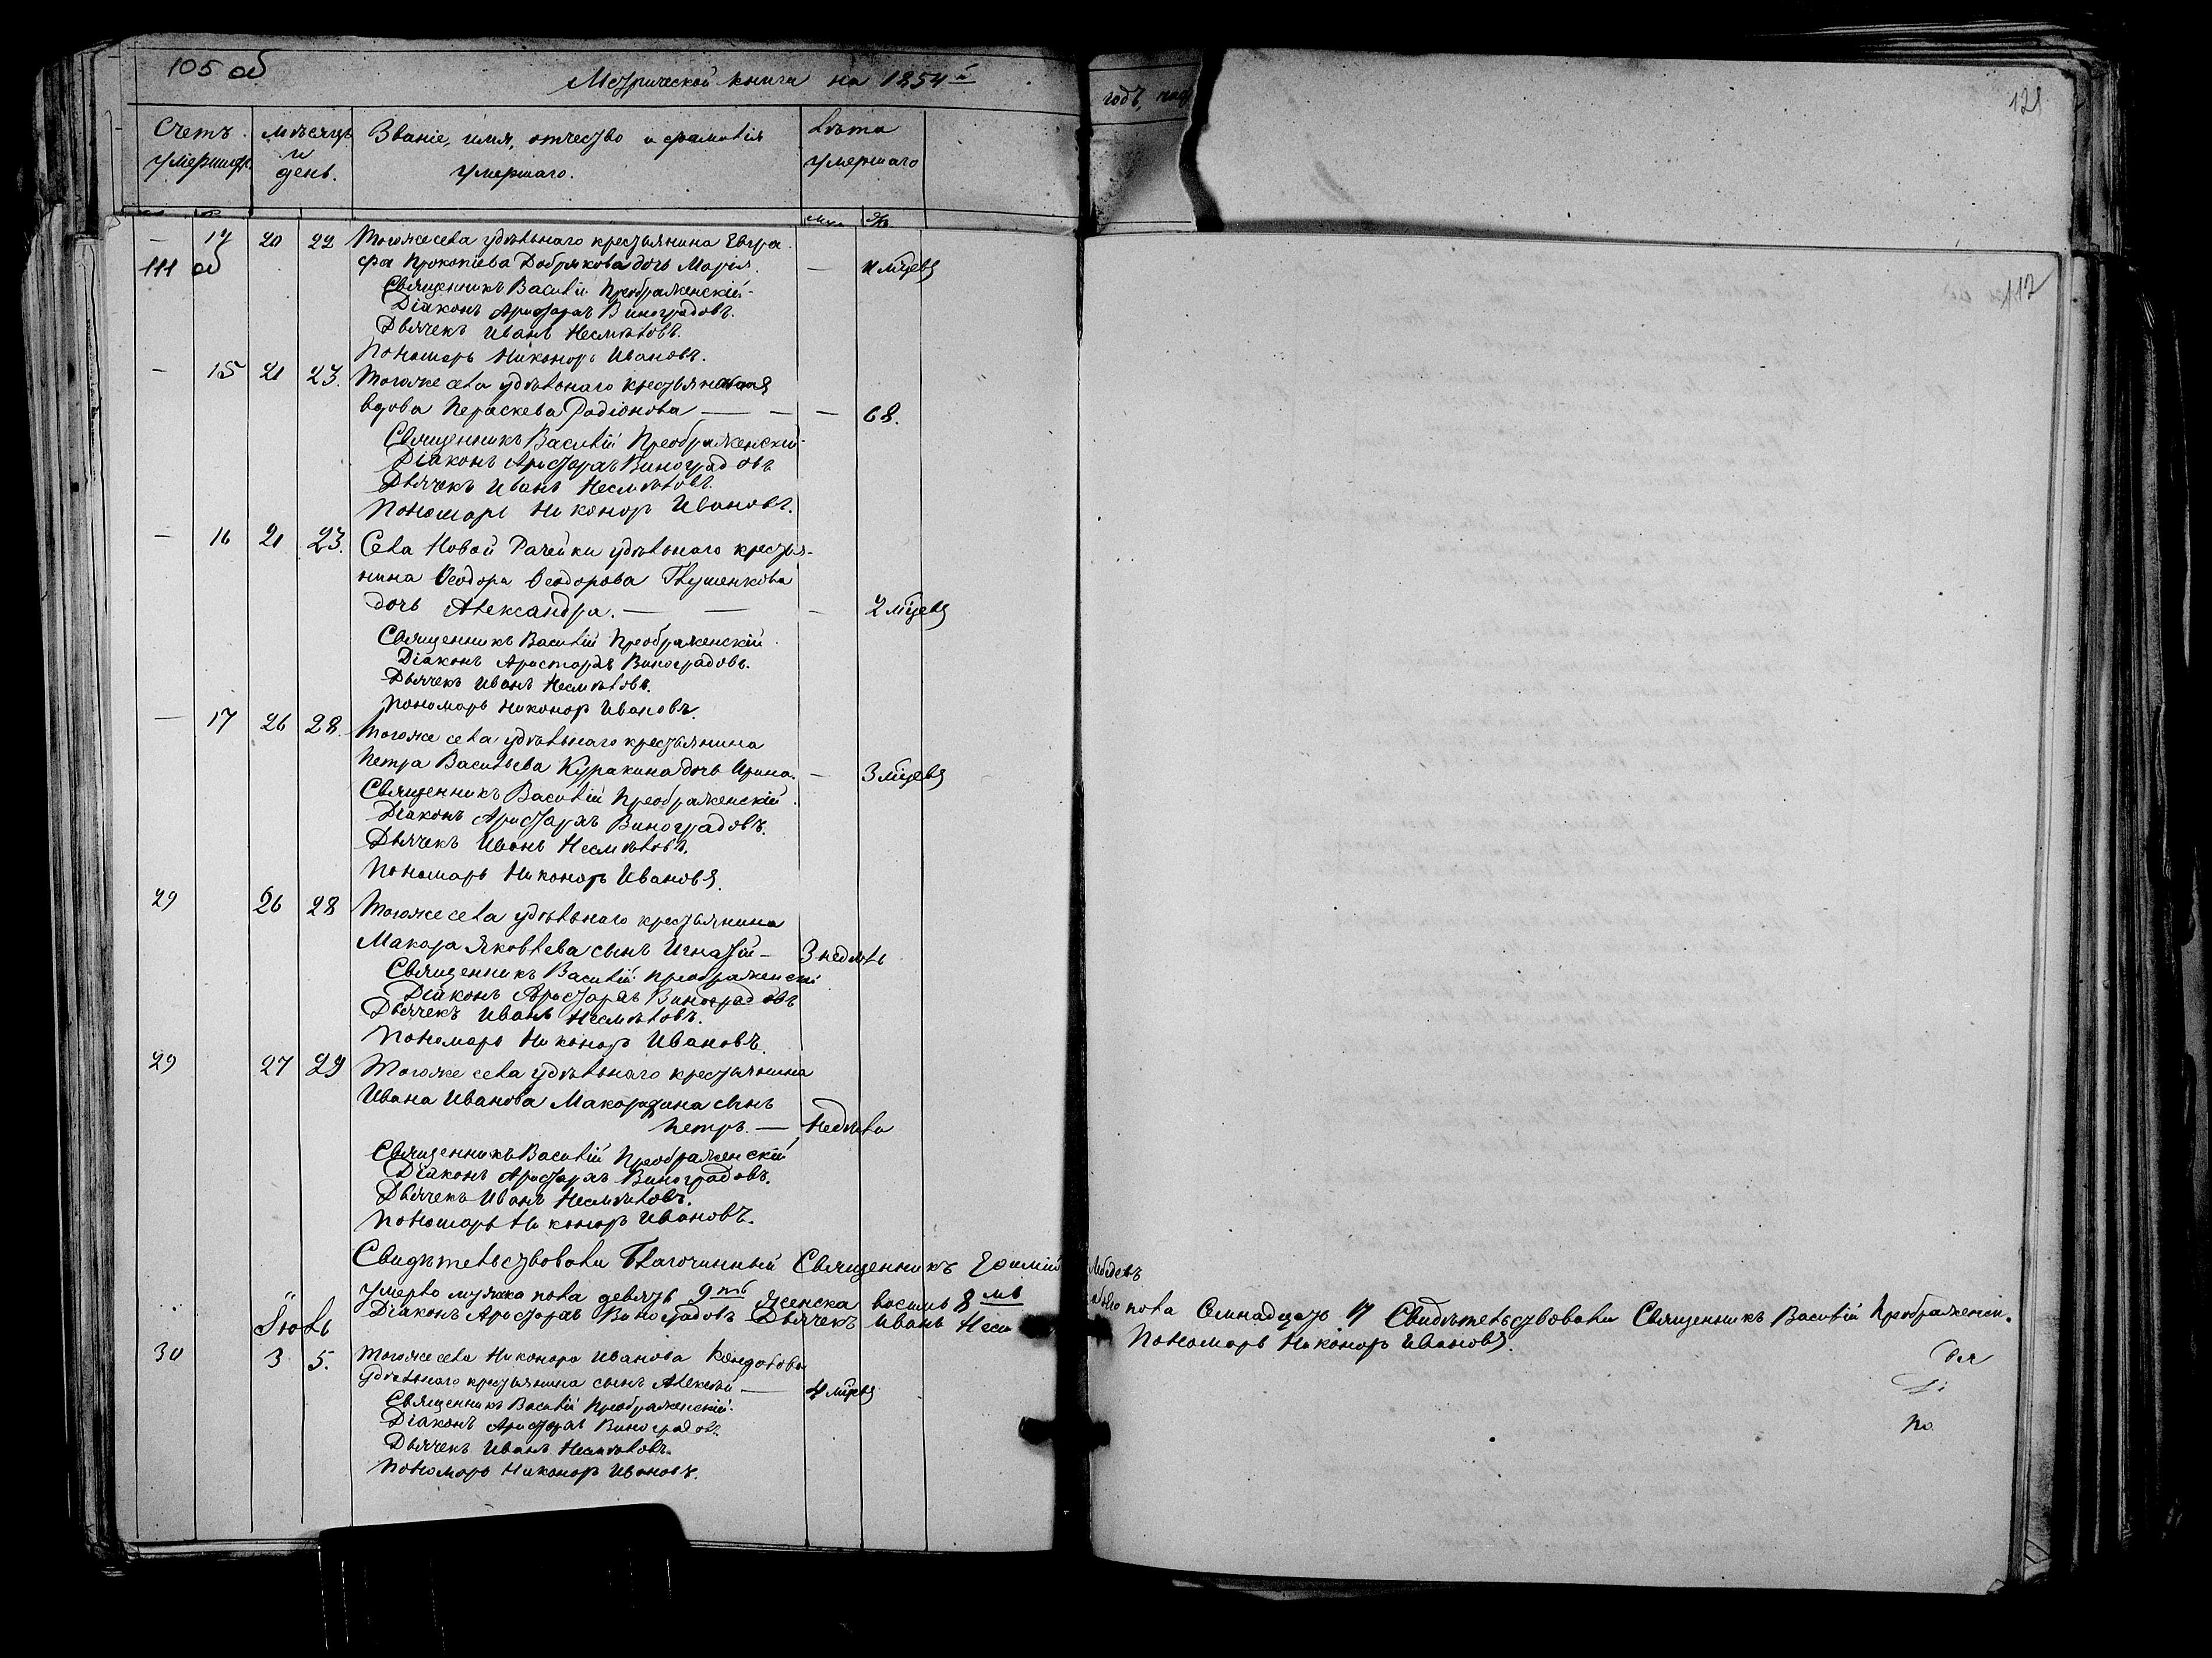 105 об
Метрической книги на 1854й
годъ, час
121
Счетъ умершихъ.
мѣсяцъ и день.
Званіе, имя, отчество и фамилія умершаго.
Лѣта умершаго
— 14 20 22 Тогоже села удѣльнаго крестьянина Евгра-
111 об
112
фа Прокопіева Добрякова дочь Марія. — 11 мѣцевъ
Священникъ Василій Преображенскій.
Діаконъ Аристархъ Виноградовъ.
Дьячекъ Иванъ Несмѣловъ.
Пономарь Никоноръ Ивановъ.
— 15 21 23. Тогоже села удѣльнаго
вдова Параскева Родіонова — — — 68.
Священникъ Василій Преображенскій
Діаконъ Аристархъ Виноградовъ
Дьячекъ Иванъ Несмѣловъ.
Пономарь Никоноръ Ивановъ.
— 16 21 23. Села Новой Рачейки удѣльнаго крестья-
нина Ѳеодора Ѳеодорова Глушенкова
дочь Александра. — — — 2 мѣцевъ
Священникъ Василій Преображенскій.
Діаконъ Аристархъ Виноградовъ.
Дьячекъ Иванъ Несмѣловъ.
Пономарь Никоноръ Ивановъ.
— 17 26 28. Тогоже села удѣльнаго крестьянина
Петра Васильева Куракина дочь Ирина. — 3 мѣцевъ
Священникъ Василій Преображенскій.
Діаконъ Аристархъ Виноградовъ.
Дьячекъ Иванъ Несмѣловъ.
Пономарь Никоноръ Ивановъ.
29 26 28 Тогоже села удѣльнаго крестьянина
Макара Яковлева сынъ Игнатій — 3 недѣль
Священникъ Василій Преображенскій
Діаконъ Аристархъ Виноградовъ
Дьячекъ Иванъ Несмѣловъ.
Пономарь Никоноръ Ивановъ.
29 27 29 Тогоже села удѣльнаго крестьянина
Ивана Иванова сынъ
Петръ. — Недѣля
Священникъ Василій Преображенскій
Діаконъ Аристархъ Виноградовъ.
Дьячекъ Иванъ Несмѣловъ.
Пономарь Никоноръ Ивановъ.
Свидѣтельствовали Благочинный Священникъ Ефимій Лебедевъ
умерло мужска пола девять 9ть женска восемь 8мь обоего пола Семнадцать 17 Свидѣтельствовали Священникъ Василій Преображенск.
Діаконъ Аристархъ Виноградовъ Дьячекъ Иванъ Несм Пономарь Никоноръ Ивановъ.
Іюль
30 3 5. Тогоже села Никонора Иванова
Удѣльнаго крестьянина сынъ Алексѣй — 4 мѣцевъ
Священникъ Василій Преображенскій.
Діаконъ Аристархъ Виноградовъ.
Дьячекъ Иванъ Несмѣловъ.
Пономарь Никоноръ Ивановъ.
По